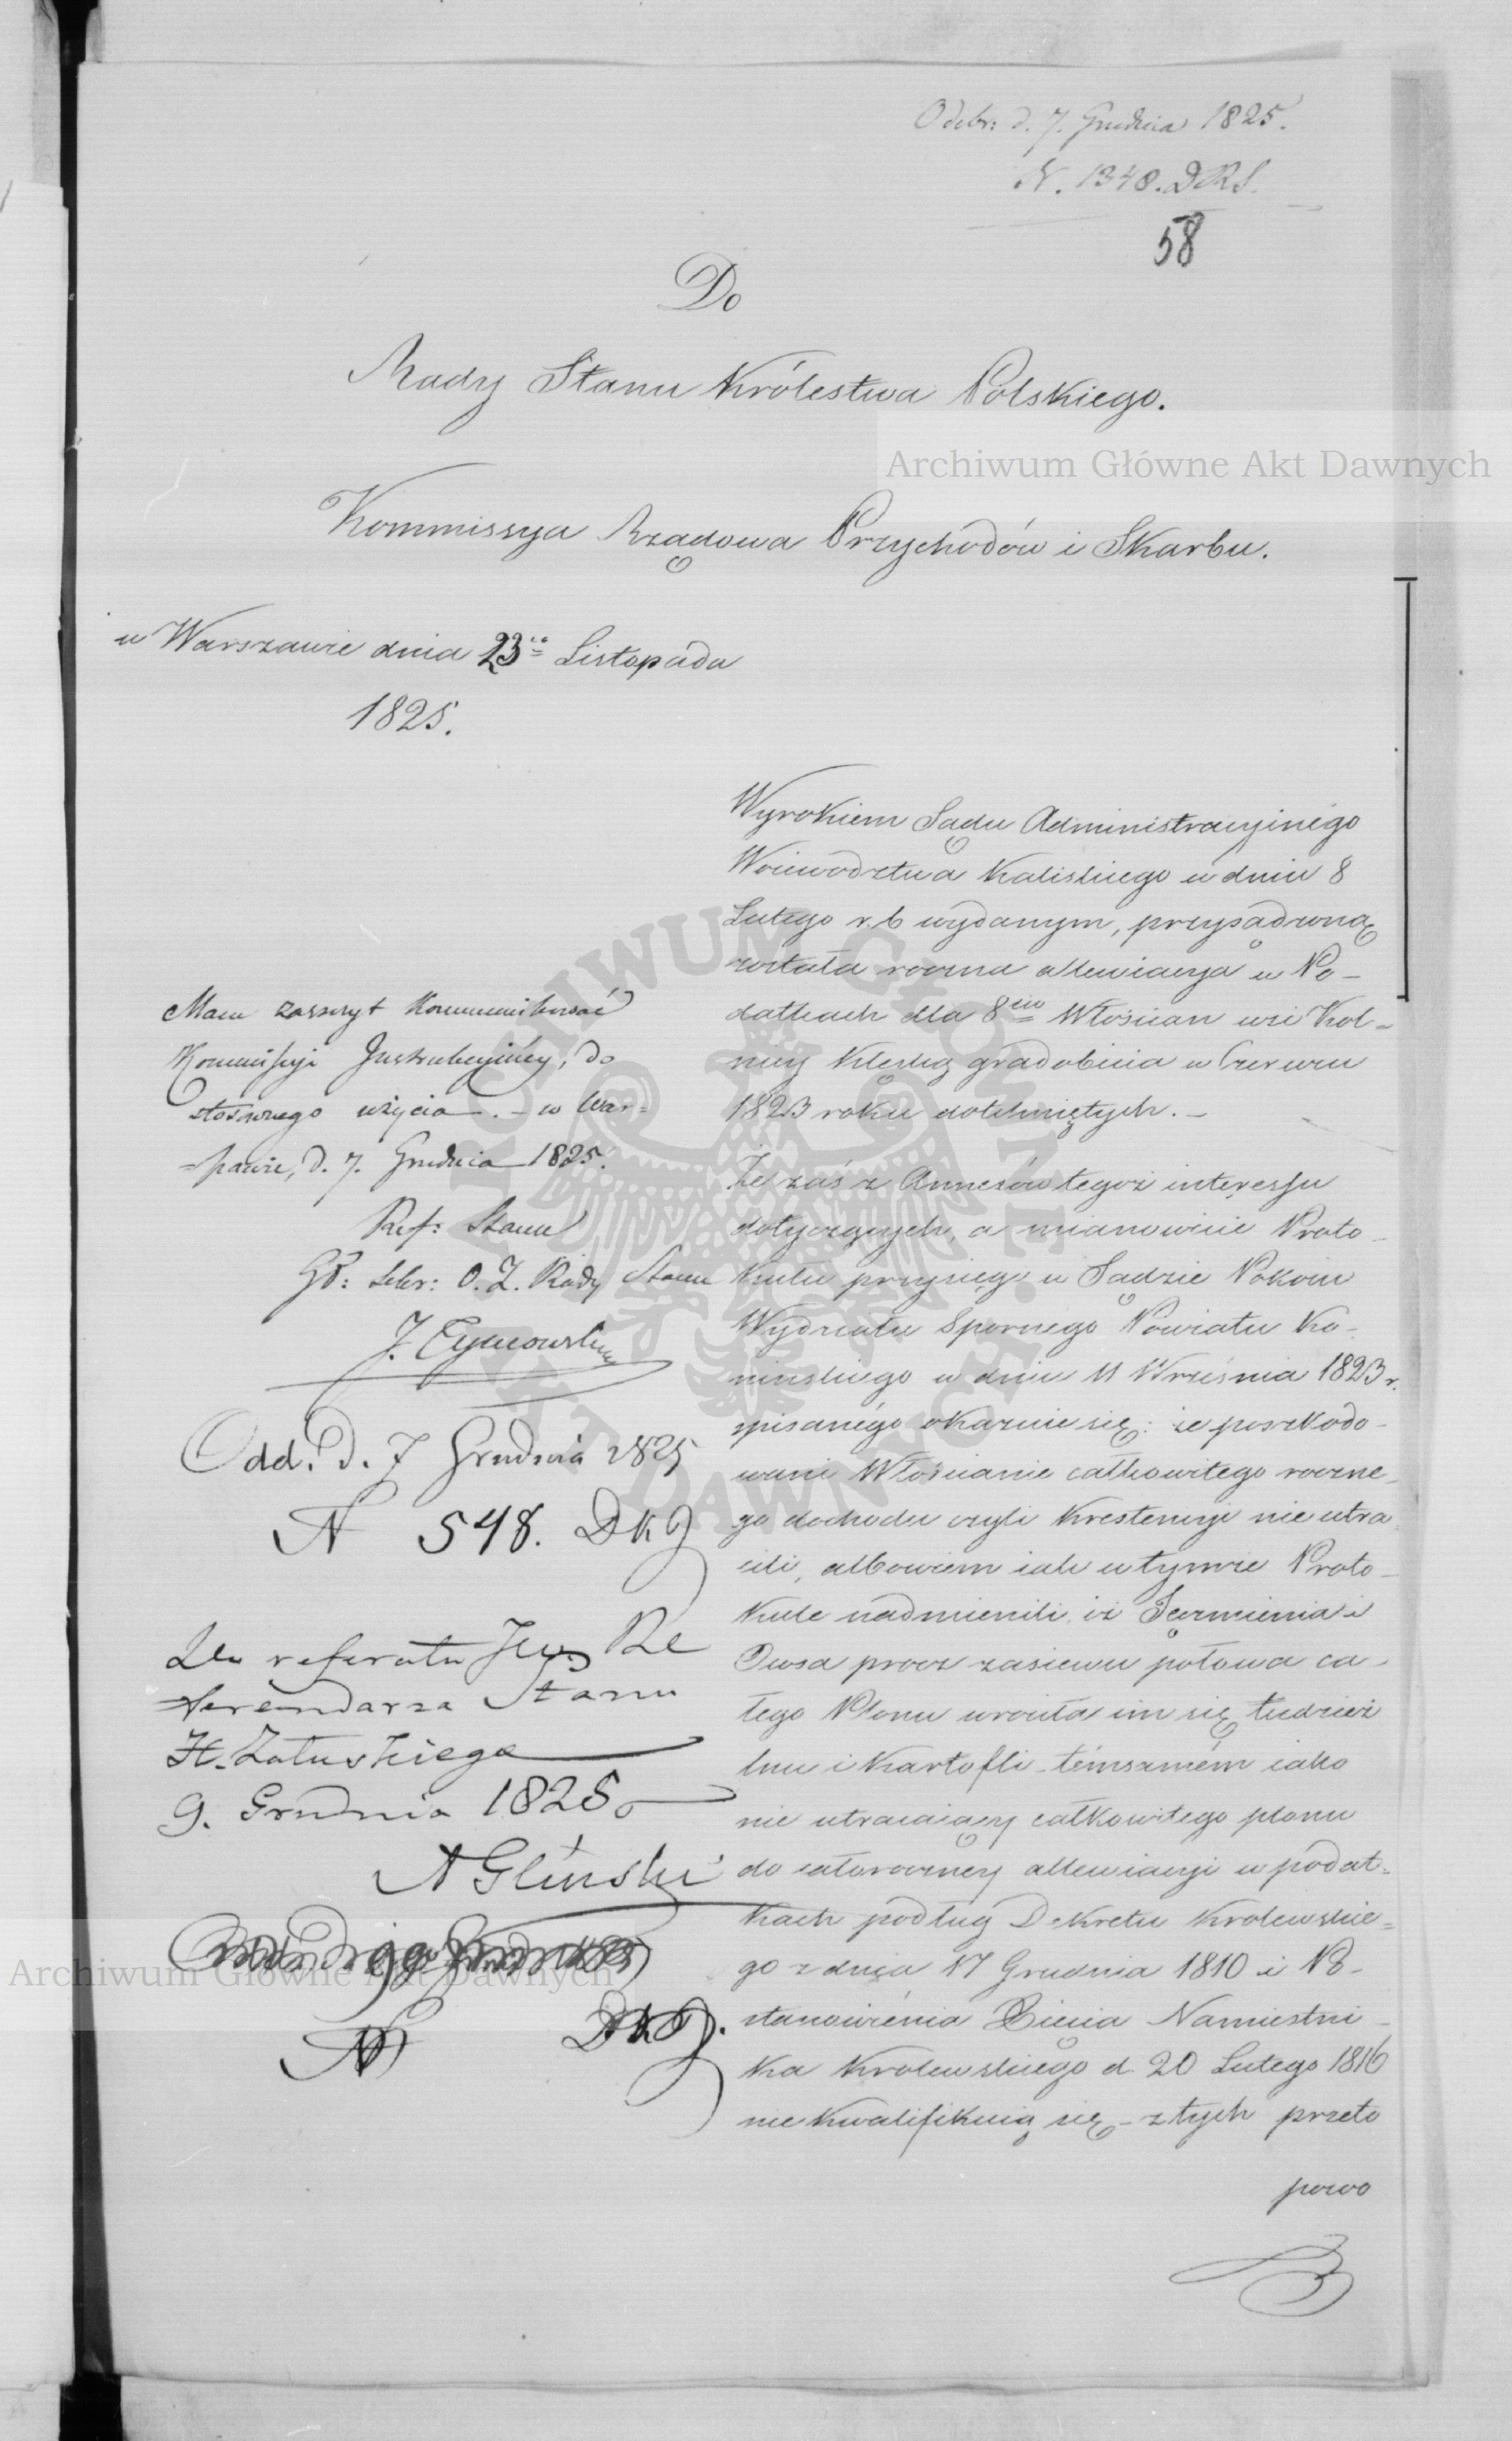 Odebr: d. 7. Grudnia 1825.
N. 1348. DRS.
58
Do
Rady Stanu Królestwa Polskiego.
Archiwum Główne Akt Dawnych
Kommissya Rządowa Przychodów i Skarbu.
w Warszawie dnia 23go Listopada
1825.
Wyrokiem Sądu Administracyinégo
Woiewodztwa Kaliskiego w dniu 8
Lutego r. b wydanym, przysądzoną
została roczna allewiacya w Po-
datkach dla 8miu Włościan wsi Kol-
nicy klęską gradobicia w Czerwcu
1823 roku dotkniętych. -
Że zaś z Annexów tegoż interessu
dotyczących, a mianowicie Proto-
kułu przysięg w Sądzie Pokoiu
Wydziału Spornego Powiatu Ko-
nińskiego w dniu 11 Września 1823 r.
spisanégo okazuie się: że poszkodo-
wani Włościanie całkowitego roczne-
go dochodu czyli krestencyi nie utra-
cili, albowiem iak w tymże Proto-
kule nadmienili iż Jęczmienia i
Owsa procz zasiewu połowa ca-
łego Plonu wrociła im się tudzież
lnu i Kartofli - témsamém iako
nie utracaiący całkowitego plonu
do całoroczney allewiacyi w podat-
kach podług Dekretu Krolewskie-
go z dnia 17 Grudnia 1810 i Po-
stanowiénia Xięcia Namiestni-
ka Krolewskiego d. 20 Lutego 1816
nie kwalifikuią się - z tych przeto
powo
Mam zaszczyt kommunikować
Kommissyi Instrukcyiney, do
stosownego użycia. - w War-
szawie, d. 7. Grudnia 1825.
Ref: Stanu
Gł: Sekr: O. Z. Rady Stanu
Odd. D. 7 Grudnia 1825
N 548. DKJ
Do referatu JW. Re
ferendarza Stanu
H. Załuskiego
9. Grudnia 1825
A Glinski
N DKJ.
Archiwum Główne Akt Dawnych
ARCHIWUM GŁÓWNE AKT DAWNYCH